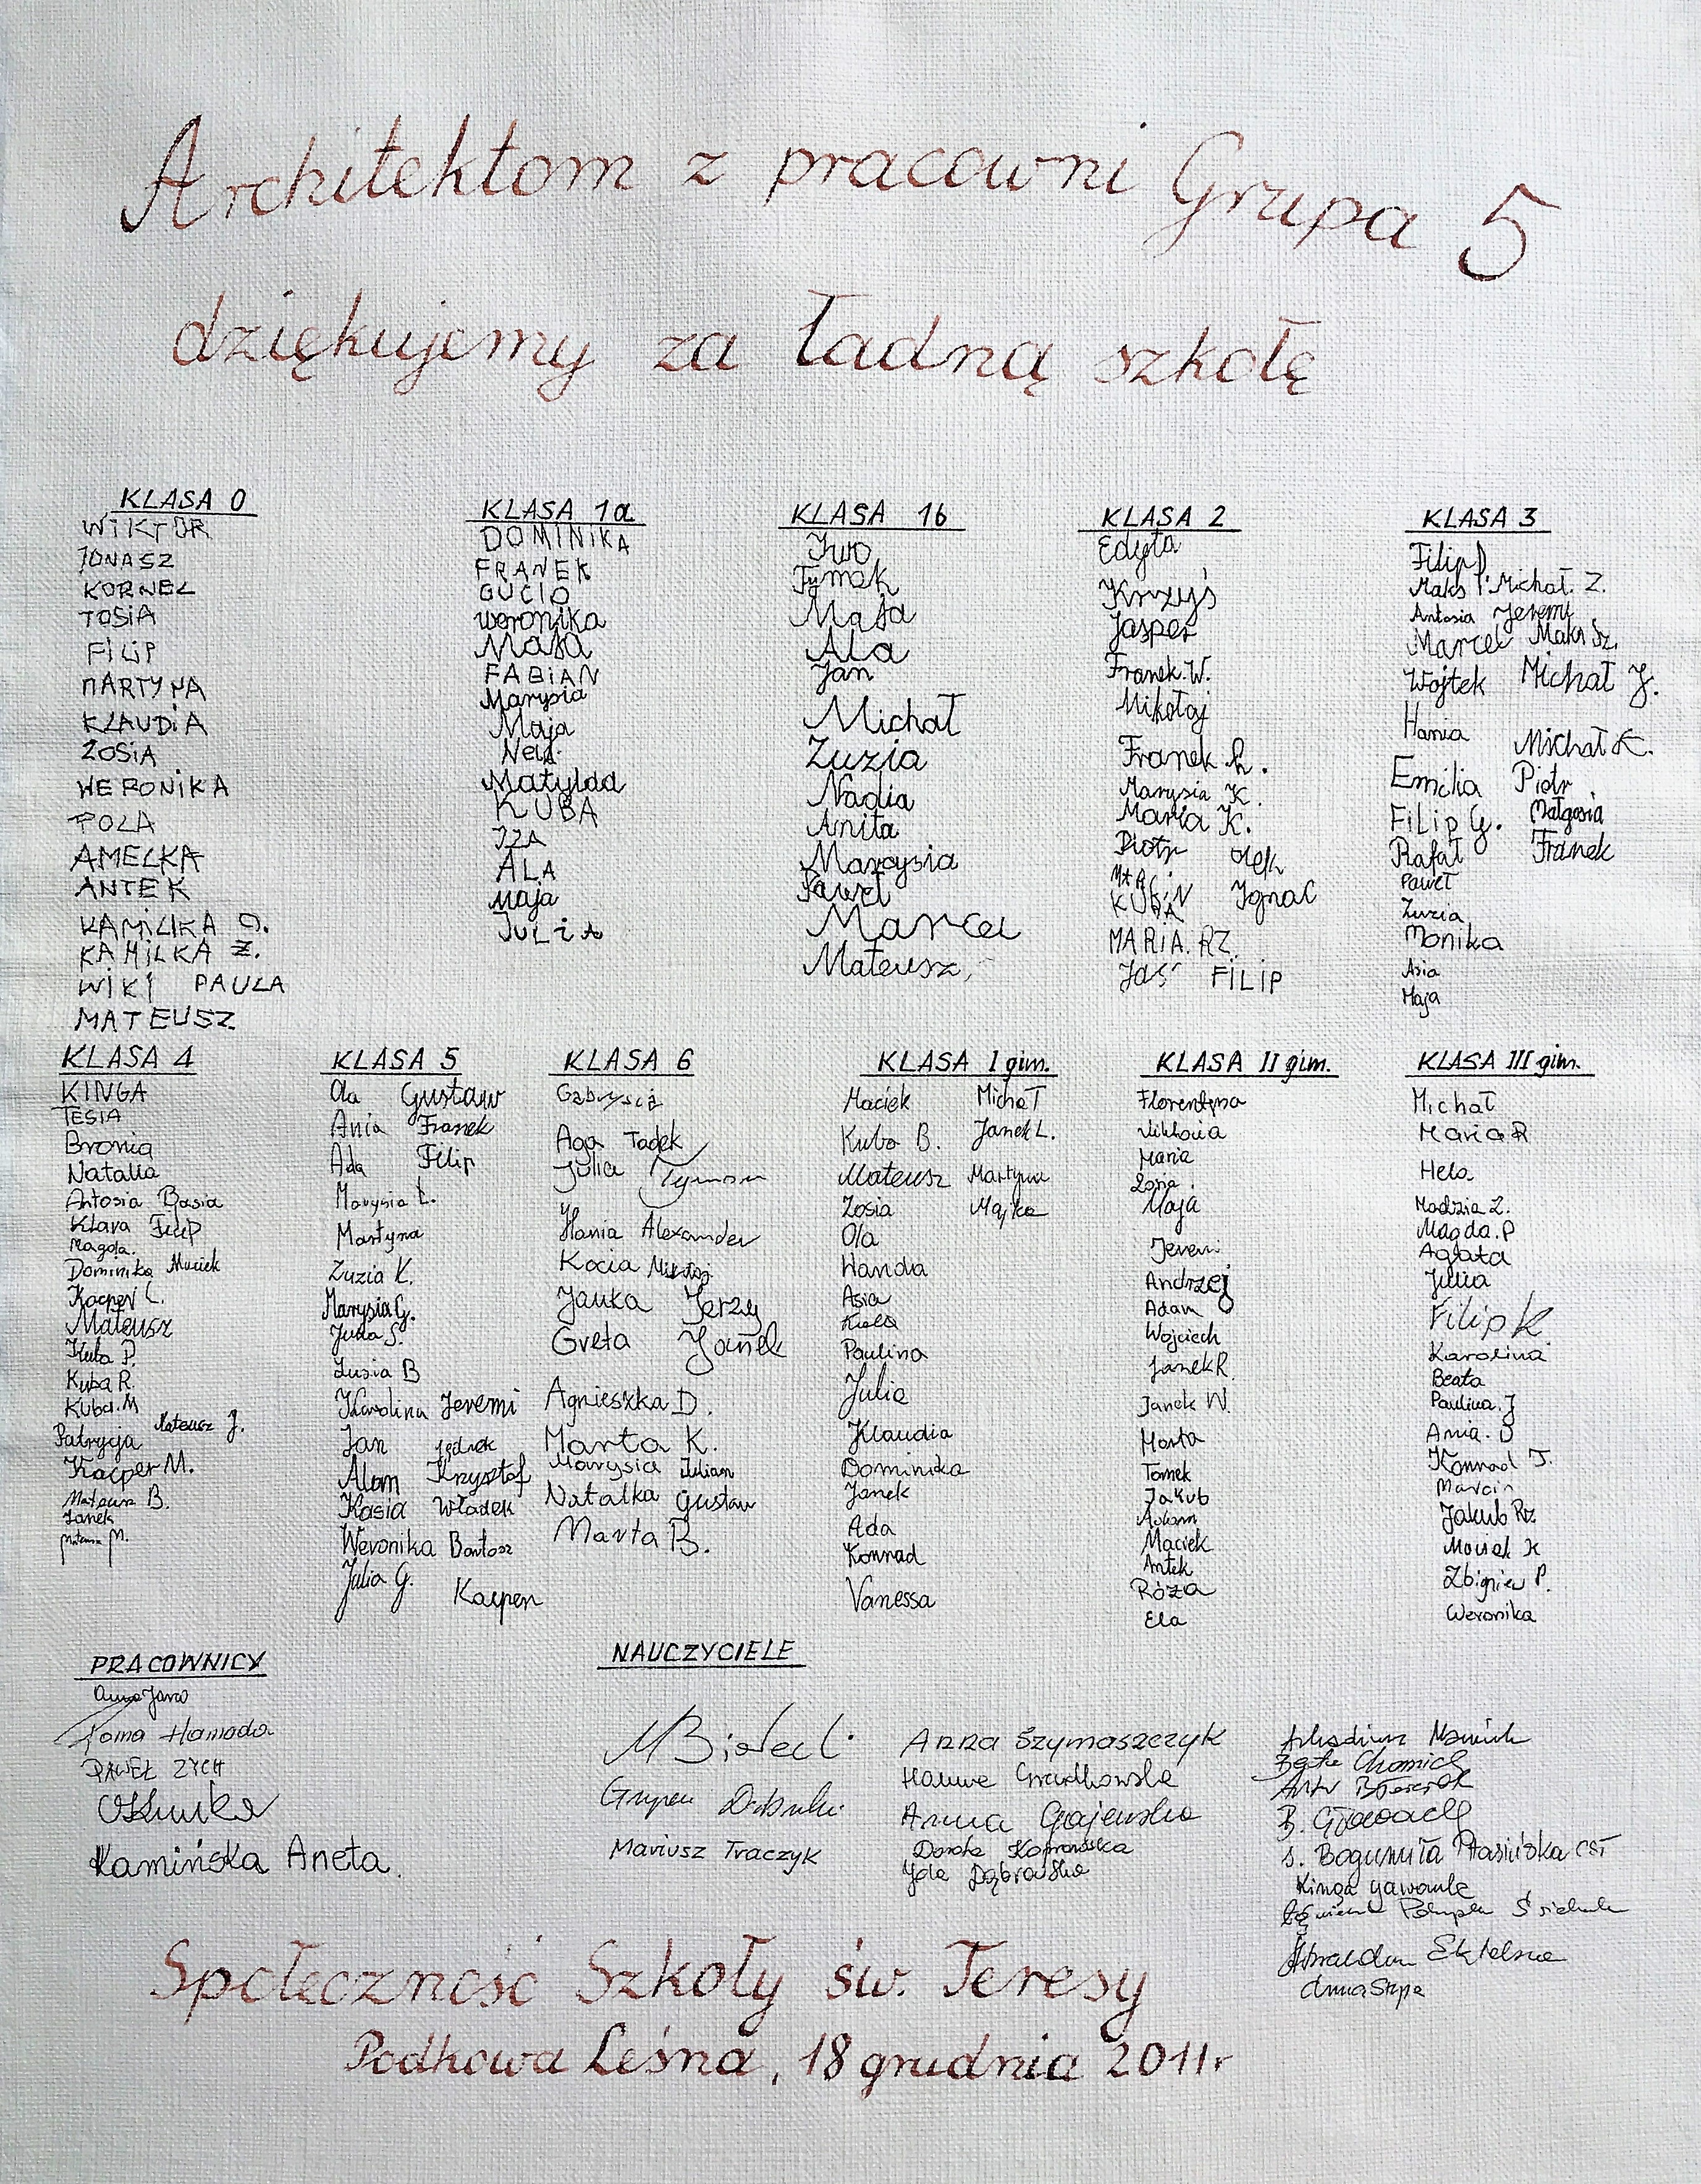 Architektom z pracowni Grupa 5
dziękujemy za ładną szkołę
KLASA 0
WIKTOR
JONASZ
KORNEL
TOSIA
FILIP
MARTYNA
KLAUDIA
ZOSIA
WERONIKA
POLA
AMELKA
ANTEK
KAMILKA O.
KAMILKA Z.
WIKI PAULA
MATEUSZ
KLASA 1a
DOMINIKA
FRANEK
GUCIO
weronika
Maja
FABIAN
Marysia
Maja
Nela
Matylda
KUBA
IZA
ALA
Maja
JULIA
KLASA 1b
Iwo
Tymek
Maja
Ala
Jan
Michał
Zuzia
Nadia
Anita
Marysia
Paweł
Marcel
Mateusz
KLASA 2
Edyta
Krzyś
Jasper
Franek W.
Mikołaj
Franek R.
Marysia K.
Maria K.
Piotr Olek
Ignac
KUBA
MARIA. RZ.
Jaś FILIP
KLASA 3
Filip P
Maks P. Michał. Z.
Antosia Jeremi
Marcel Maks Sz.
Wojtek Michał J.
Hania
Michał K.
Emilia Piotr
Filip G. Małgosia
Rafał Franek
Paweł
Zuzia
Monika
Asia
Maja
KLASA 4
KINGA
TESIA
Bronia
Natalia
Antosia Basia
Klara Filip
Magda.
Dominika Maciek
Kacper L.
Mateusz
Kuba P.
Kuba R.
Kuba. M
Mateusz J.
Patrycja
Kacper M.
Mateusz B.
Janek
Mateusz M.
KLASA 5
Ola Gustaw
Ania Franek
Ada Filip
Marysia L.
Martyna
Zuzia K.
Marysia G.
Julia S.
Zuzia B
Karolina Jeremi
Jan Jędrek
Alan Krzysztof
Kasia Władek
Weronika Bartosz
Julia G.
Kacper
KLASA 6
Gabrysia
Aga Tadek
Julia Tymon
Hania Alexander
Kocia Mikołaj
Janka Jerzy
Greta Janek
Agnieszka D.
Marta K.
Marysia Julian
Natalka Gustaw
Marta B.
KLASA I gim.
Maciek Michał
Kuba B. Janek L.
Mateusz Martyna
Zosia Majka
Ola
Wanda
Asia
Paulina
Julia
Klaudia
Dominika
Janek
Ada
Konrad
Vanessa
KLASA II gim.
Florentyna
Wiktoria
Maria
Zosia
Maja
Jeremi
Andrzej
Adam
Wojciech
Janek R.
Janek W.
Marta
Tomek
Jakub
Adam
Maciek
Antek
Róża
Ela
KLASA III gim.
Michał
Maria R
Hela
Madzia Z.
Magda. P
Agata
Julia
Filip K
Karolina
Beata
Paulina. J
Ania. J
Konrad T.
Marcin
Jakub Rz.
Maciek K
Zbigniew P.
Weronika
PRACOWNICY
PAWEŁ ZYCH
Kamińska Aneta
NAUCZYCIELE
Mariusz Traczyk
Anna Szymaszczyk
Anna Gajewska
Dorota
Jola Dąbrowska
Arkadiusz
Beata
s. Bogumiła Ptasińska CST
Kinga
Społeczność Szkoły św. Teresy
Podkowa Leśna, 18 grudnia 2011r